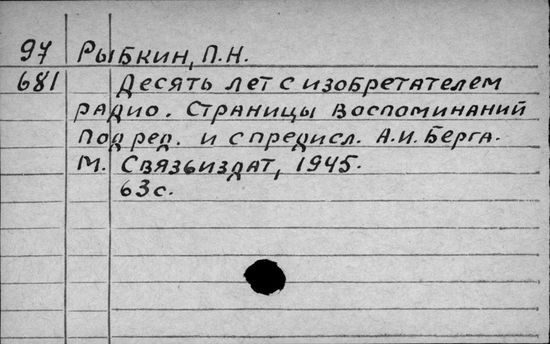 97 Рыбкин, П.Н.
681 Десять лет с изобретателем
радио. Страницы воспоминаний
Под ред. и с предисл. А.И. Берга.
М. Связьиздат, 1945.
63 с.